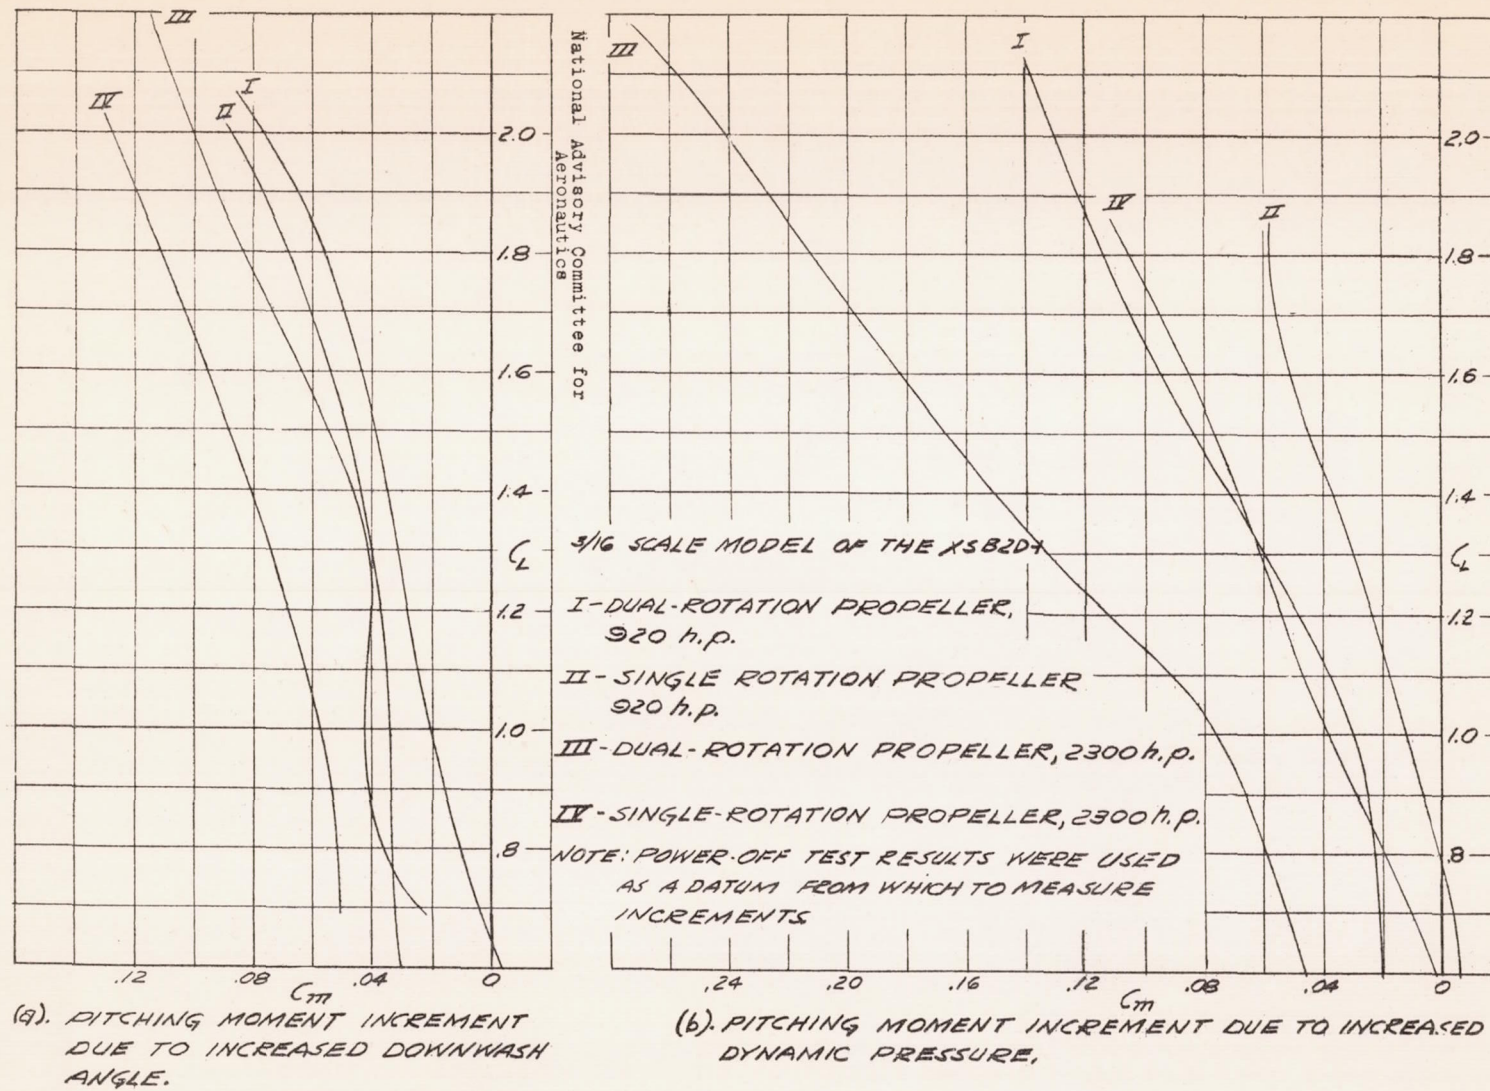 III
IV
I
II
2.0
1.8
1.6
1.4
C_L
1.2
1.0
.8
.12
.08
.04
0
C_m
(a). PITCHING MOMENT INCREMENT
DUE TO INCREASED DOWNWASH
ANGLE.
National Advisory Committee for
Aeronautics
III
I
IV
II
2.0
1.8
1.6
1.4
C_L
1.2
1.0
.8
3/16 SCALE MODEL OF THE XSB2D-1
I-DUAL-ROTATION PROPELLER,
920 h.p.
II-SINGLE ROTATION PROPELLER
920 h.p.
III-DUAL-ROTATION PROPELLER, 2300 h.p.
IV-SINGLE-ROTATION PROPELLER, 2300 h.p.
NOTE: POWER-OFF TEST RESULTS WERE USED
AS A DATUM FROM WHICH TO MEASURE
INCREMENTS
.24
.20
.16
.12
.08
.04
0
C_m
(b). PITCHING MOMENT INCREMENT DUE TO INCREASED
DYNAMIC PRESSURE.